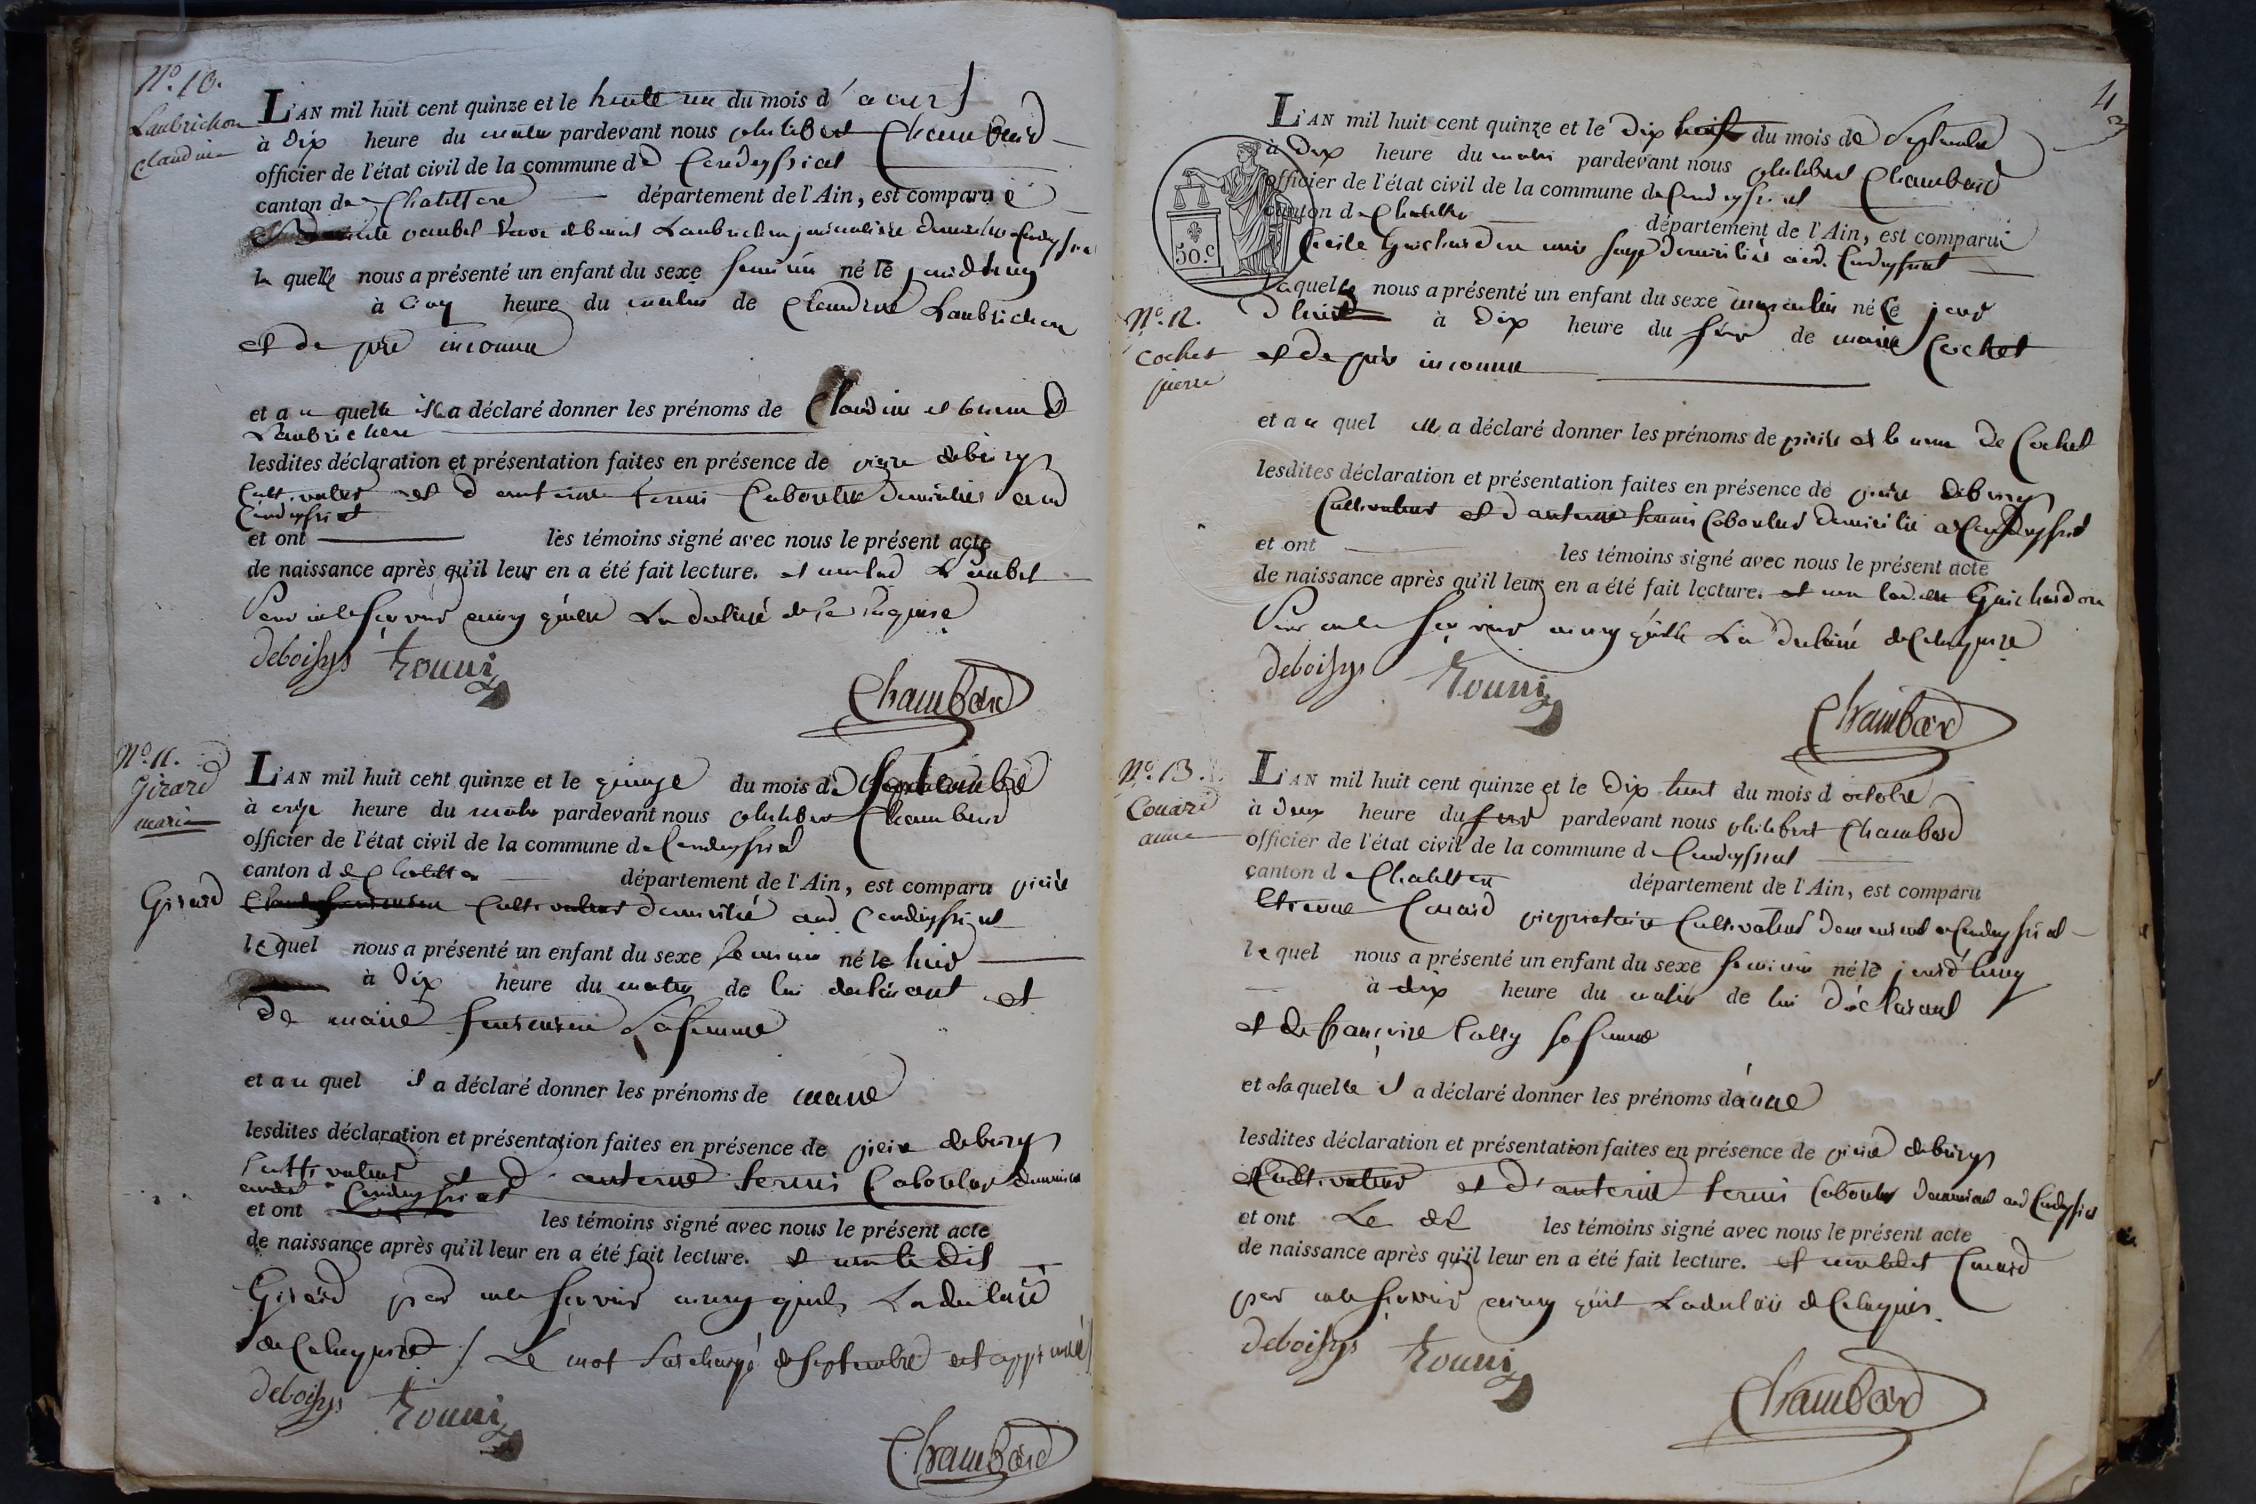 N.º 10.
Laubrichon
Claudine
L'AN mil huit cent quinze et le trente un du mois d'aout
à dix heure du matin pardevant nous philibert Chambard
officier de l'état civil de la commune de Condeyssiat
canton de Chatillon département de l'Ain, est comparu e
vaubel veuve Laubrichon journaliere
la quelle nous a présenté un enfant du sexe feminin né le jourdhuy
à cinq heure du matin de Claudine Laubrichon
et de pere inconnu
et a u quelle il a déclaré donner les prénoms de Claudine et le nom de
Laubrichon
lesdites déclaration et présentation faites en présence de pierre deboisys
Cultivateur et d'antoine Laboureur domiciliés
Condeyssiat
et ont les témoins signé avec nous le présent acte
de naissance après qu'il leur en a été fait lecture. et non lad.
pour ne le sçavoir ainsy qu'elle La declaré de ce Requise
deboisys
Chambard
N.º 11.
Girard
marie
L'AN mil huit cent quinze et le quinze du mois de Septembre
à onze heure du matin pardevant nous philibert Chambard
officier de l'état civil de la commune de Condeyssiat
canton d e Chatillon département de l'Ain, est comparu pierre
Girard Cultivateur domicilié aud. Condeyssiat
le quel nous a présenté un enfant du sexe feminin né le huit
à dix heure du matin de lui declarant et
de marie sa femme
et a u quel il a déclaré donner les prénoms de marie
lesdites déclaration et présentation faites en présence de pierre deboisys
Cultivateur et d'antoine Laboureur
Condeyssiat
et ont les témoins signé avec nous le présent acte
de naissance après qu'il leur en a été fait lecture. et non le dit
Girard pour ne le sçavoir ainsy quil La declaré
de ce Requis / Le mot surchargé de Septembre est approuvé /
deboisys
Chambard
4
50.C
L'AN mil huit cent quinze et le dix huit du mois de Septembre
à dix heure du matin pardevant nous philibert Chambard
officier de l'état civil de la commune de Condeyssiat
canton de Chatillon département de l'Ain, est comparu e
Cecile Guichardon Condeyssiat
la quelle nous a présenté un enfant du sexe masculin né le jour
N.º 12.
d'hier à dix heure du soir de marie Cochet
Cochet
pierre
et de pere inconnu
et a u quel elle a déclaré donner les prénoms de pierre et le nom de Cochet
lesdites déclaration et présentation faites en présence de pierre deboisys
Cultivateur et d'antoine Laboureur domicilié a Condeyssiat
et ont les témoins signé avec nous le présent acte
de naissance après qu'il leur en a été fait lecture. et non ladite Guichardon
pour ne le sçavoir ainsy qu'elle La declaré de ce Requise
deboisys
Chambard
N.º 13.
Couard
anne
L'AN mil huit cent quinze et le dix huit du mois d octobre
à deux heure du soir pardevant nous philibert Chambard
officier de l'état civil de la commune d e Condeyssiat
canton d e Chatillon département de l'Ain, est comparu
Etienne Couard propriétaire Cultivateur demeurant a Condeyssiat
le quel nous a présenté un enfant du sexe feminin né le jourd'huy
à dix heure du matin de lui déclarant
et de françoise sa femme
et a la quelle il a déclaré donner les prénoms d'anne
lesdites déclaration et présentation faites en présence de pierre deboisys
Cultivateur et d'antoine Laboureur demeurant aud Condeyssiat
et ont les témoins signé avec nous le présent acte
de naissance après qu'il leur en a été fait lecture. et non ledit Couard
pour ne le sçavoir ainsy quil La declaré de ce Requis.
deboisys
Chambard